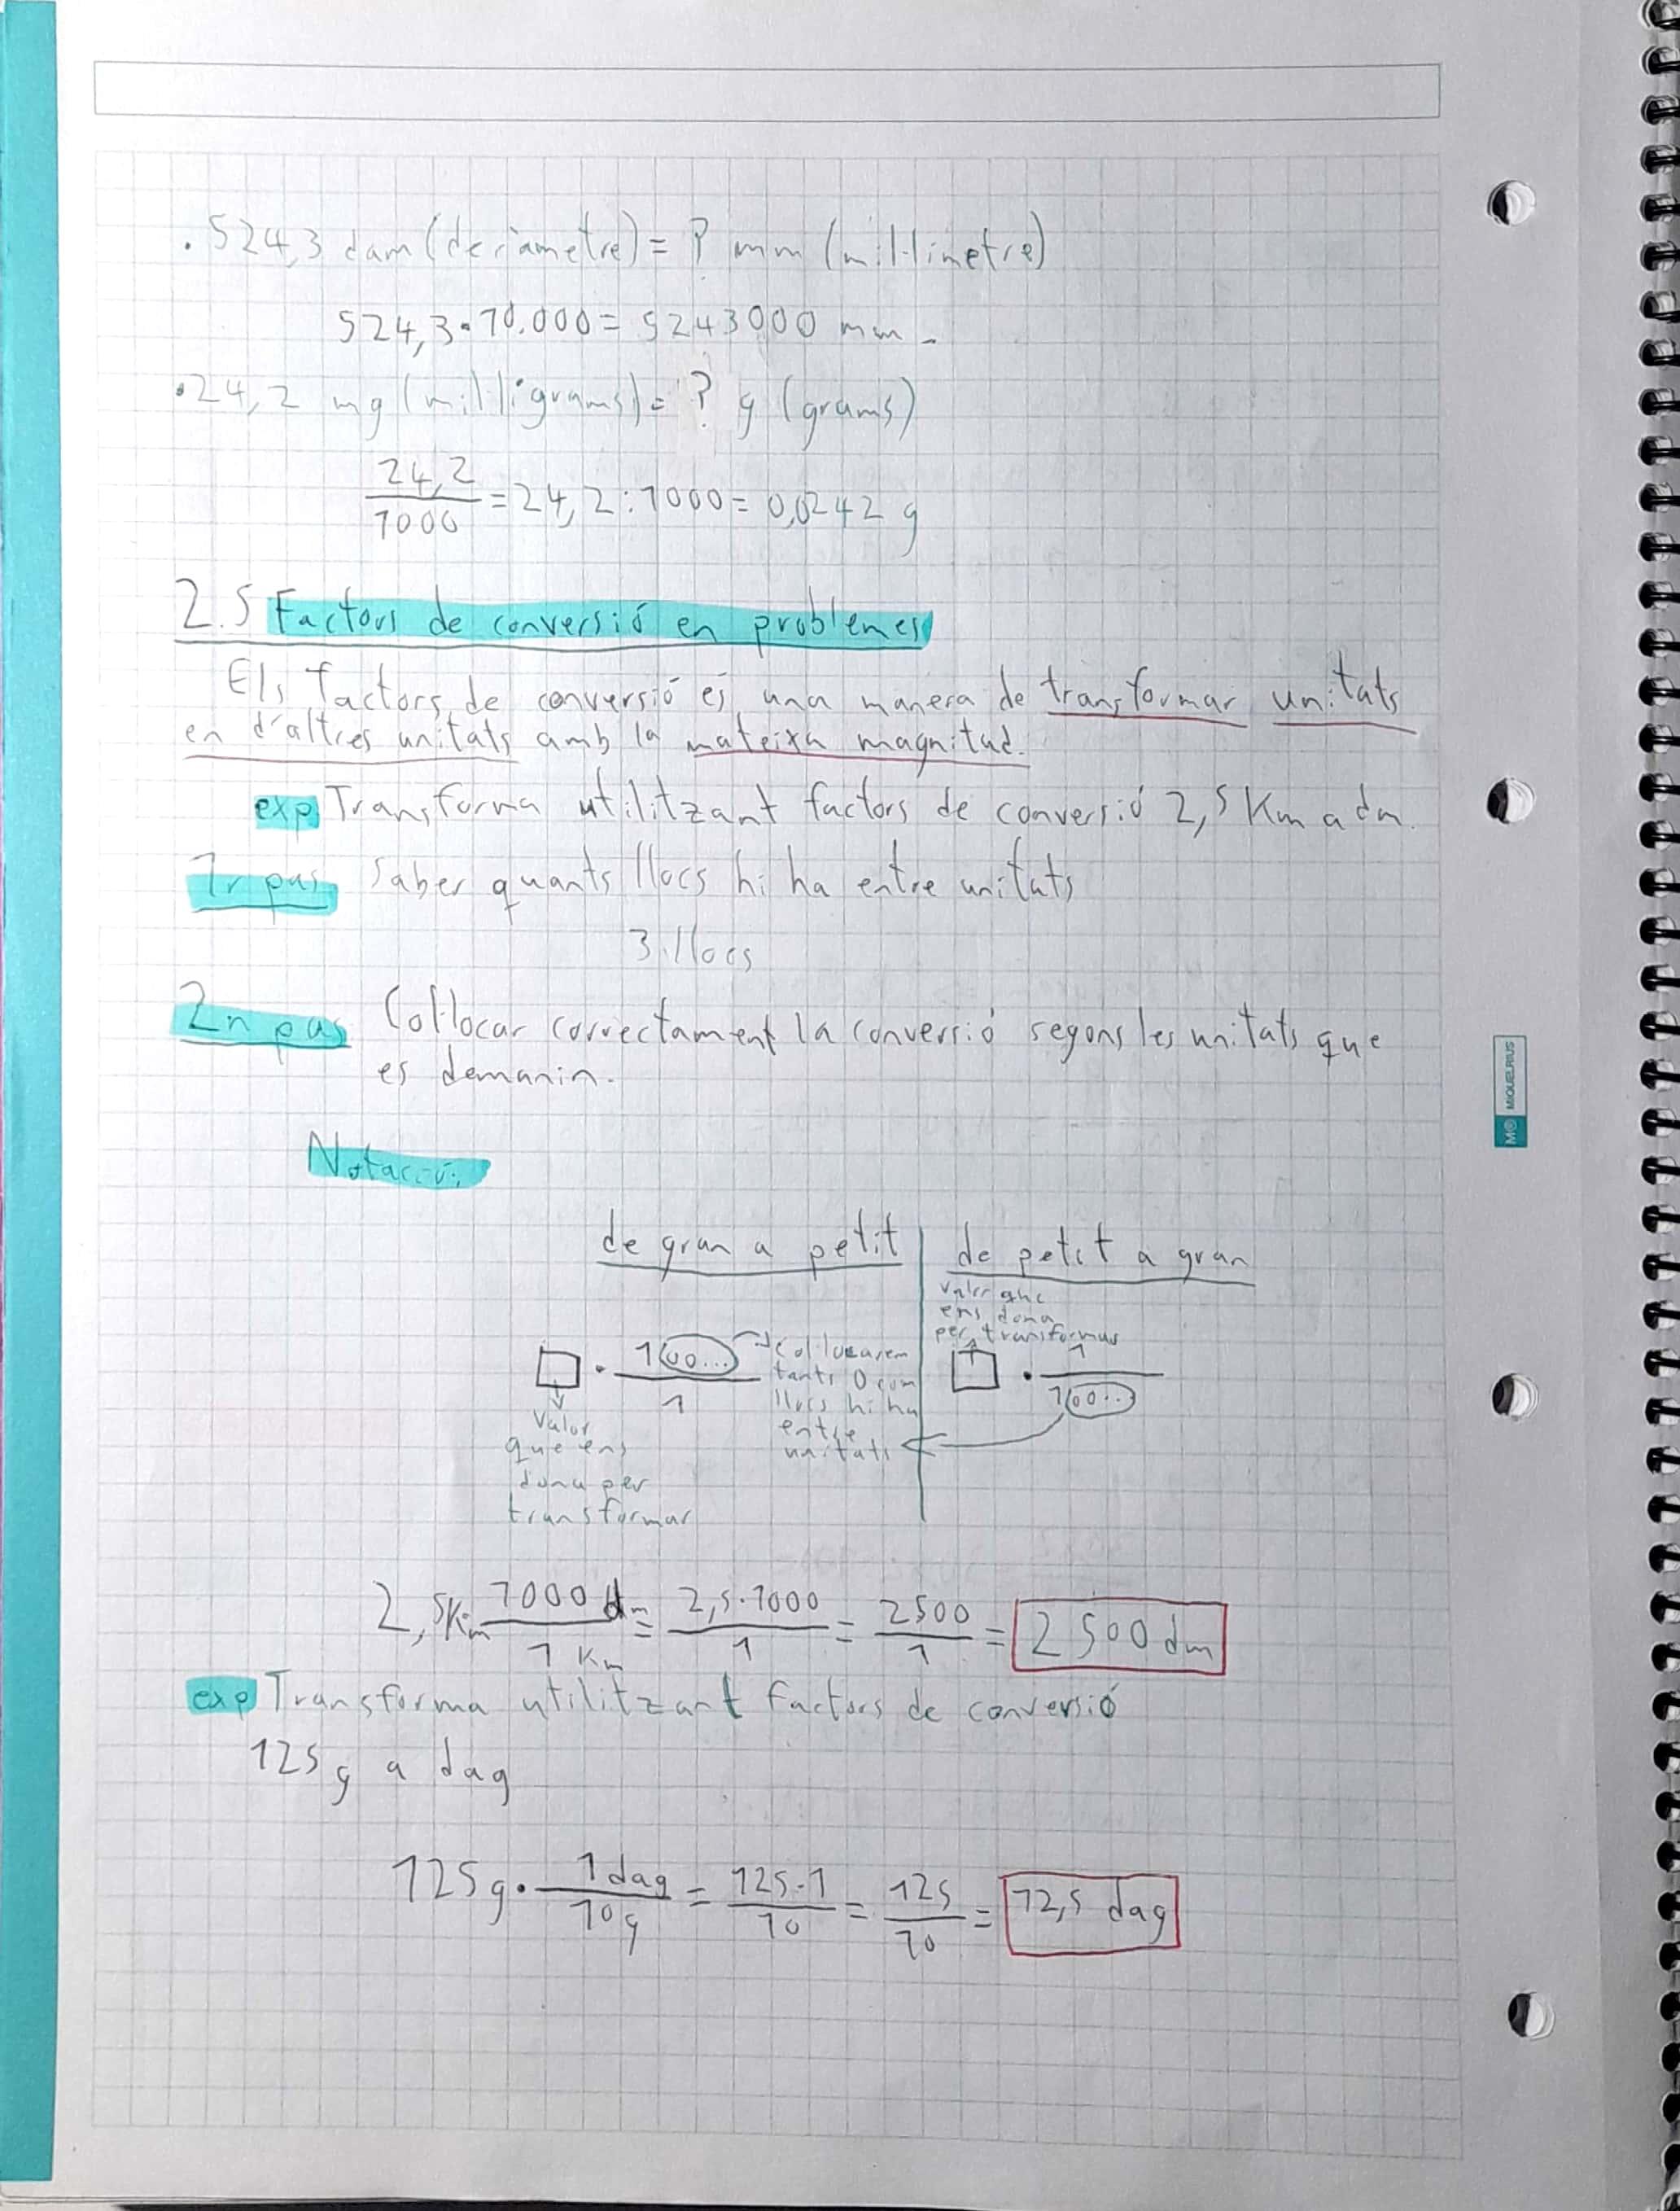 . 524,3 dam (decàmetre) = ? mm (mil·límetre)
524,3 · 10.000 = 5243000 mm.
· 24,2 mg (mil·ligrams) = ? g (grams)
24,2 / 1000 = 24,2 : 1000 = 0,0242 g
2.5 Factors de conversió en problemes
Els factors de conversió és una manera de transformar unitats
en d'altres unitats amb la mateixa magnitud.
exp Transforma utilitzant factors de conversió 2,5 Km a dm.
1r pas Saber quants llocs hi ha entre unitats
3 llocs
2n pas Col·locar correctament la conversió segons les unitats que
es demanin.
Notació:
de gran a petit
□ · 100... / 1
Valor
que ens
dona per
transformar
Col·locarem
tants 0 com
llocs hi ha
entre
unitats
de petit a gran
Valor que
ens dona
per transformar
□ · 1 / 100...
2,5 Km 1000 dm / 1 Km = 2,5 · 1000 / 1 = 2500 / 1 = 2500 dm
exp Transforma utilitzant factors de conversió
125 g a dag
125 g · 1 dag / 10 g = 125 · 1 / 10 = 125 / 10 = 12,5 dag
MQ MIQUELRIUS